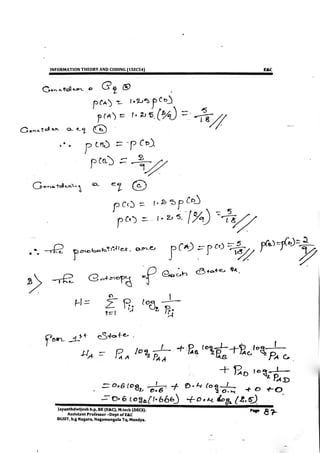 INFORMATION THEORY AND CODING (15EC54) E&C
Considering a Eq ③
p(A) = 1.25 p(D)
p(A) = 1.25 (2/9) = 5/18 //
Consider a eq ⓑ
∴ p(B) = p(D)
p(B) = 2/9 //
Considering a eq ⓒ
p(C) = 1.25 p(D)
p(C) = 1.25 (2/9) = 5/18 //
∴ The probabilities are p(A) = p(C) = 5/18 // p(B)=p(D)=2/9
2) The Entropy of Each State is.
H = Σ Pij log 1/Pij
n
i=1
For 1st State.
HA = PAA log 1/PAA + PAB log 1/PAB + PAC log 1/PAC
+ PAD log 1/PAD
= 0.6 log2 1/0.6 + 0.4 log 1/0.4 + 0 + 0
= 0.6 log2(1.666) + 0.4 log2 (2.5)
Jayanthdwijesh h.p, BE (E&C), M.tech (DECS).
Assistant Professor –Dept of E&C
BGSIT, b.g Nagara, Nagamangala Tq, Mandya.
Page 87